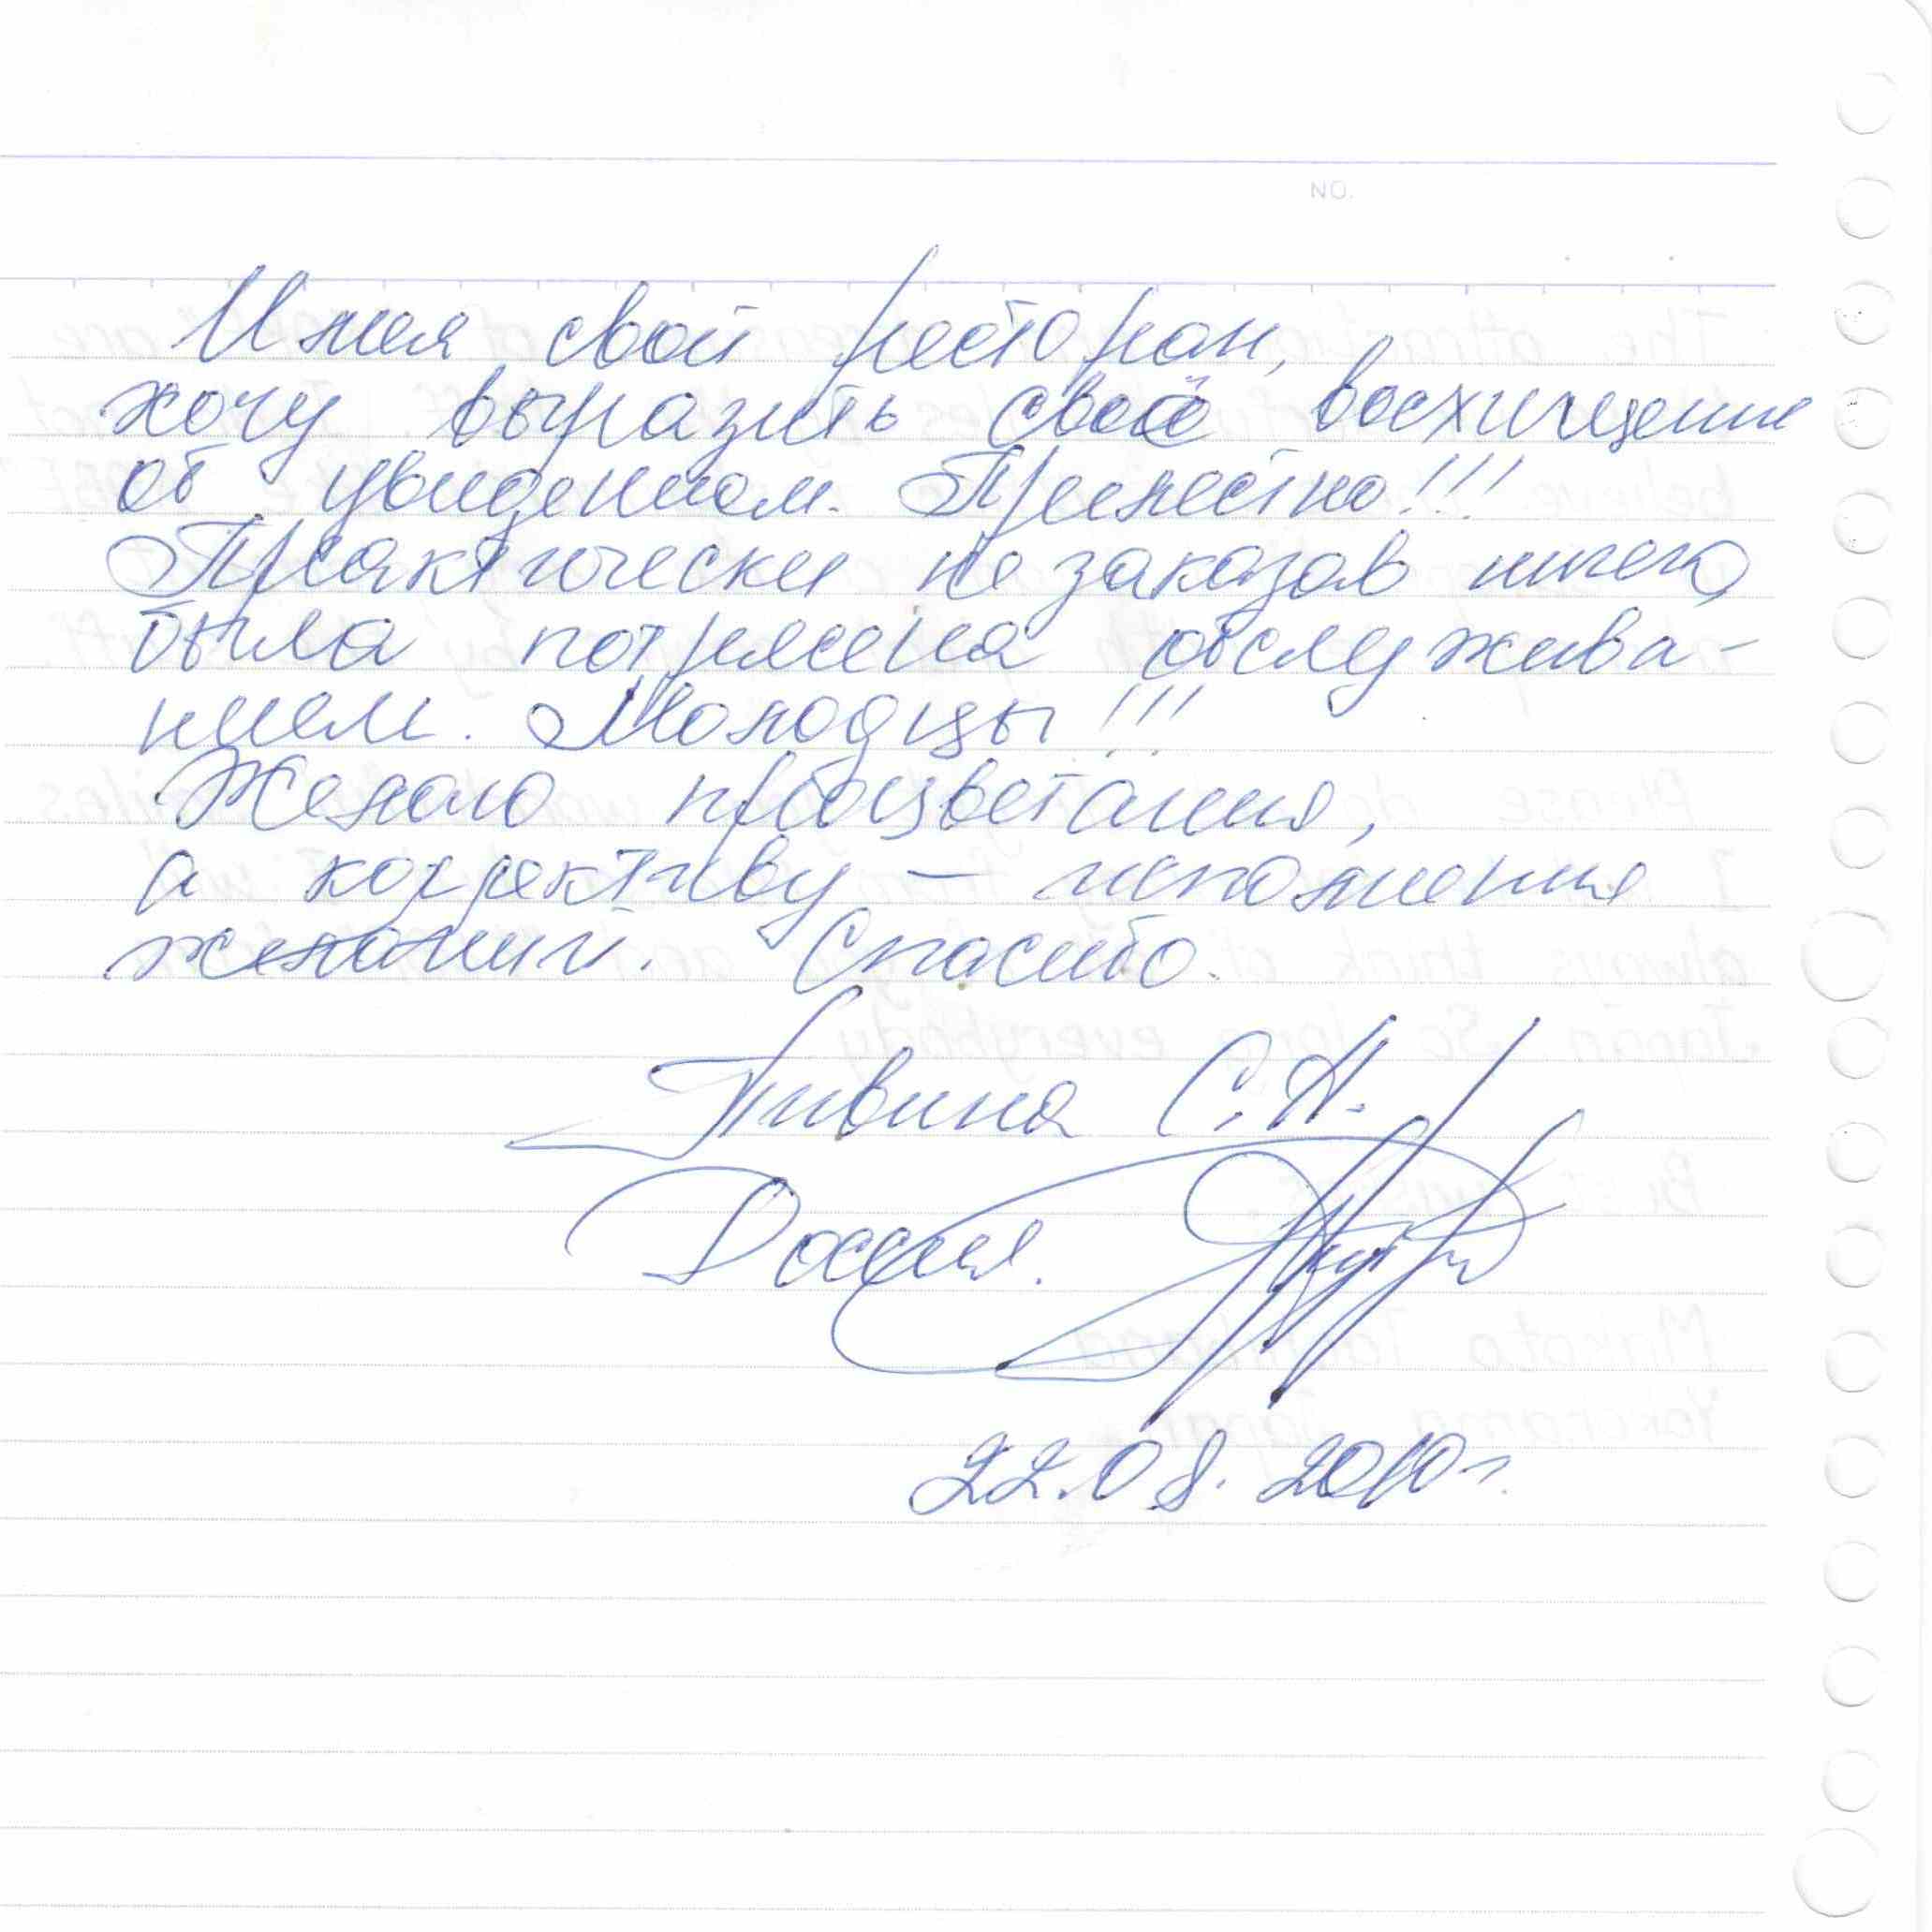 NO.
Имея свой ресторан,
хочу выразить своё восхищение
об увиденном. Прелестно!!!
Практически не заказав ничего,
была потрясена обслужива-
нием. Молодцы!!!
Желаю процветания,
а коррективу – исполнения
желаний. Спасибо.
Пивина С.А.
Россия.
22.08.2010г.